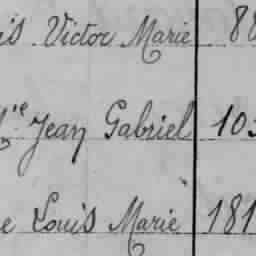 is Victor Marie 88
Jean Gabriel 103
e Louis Marie 181